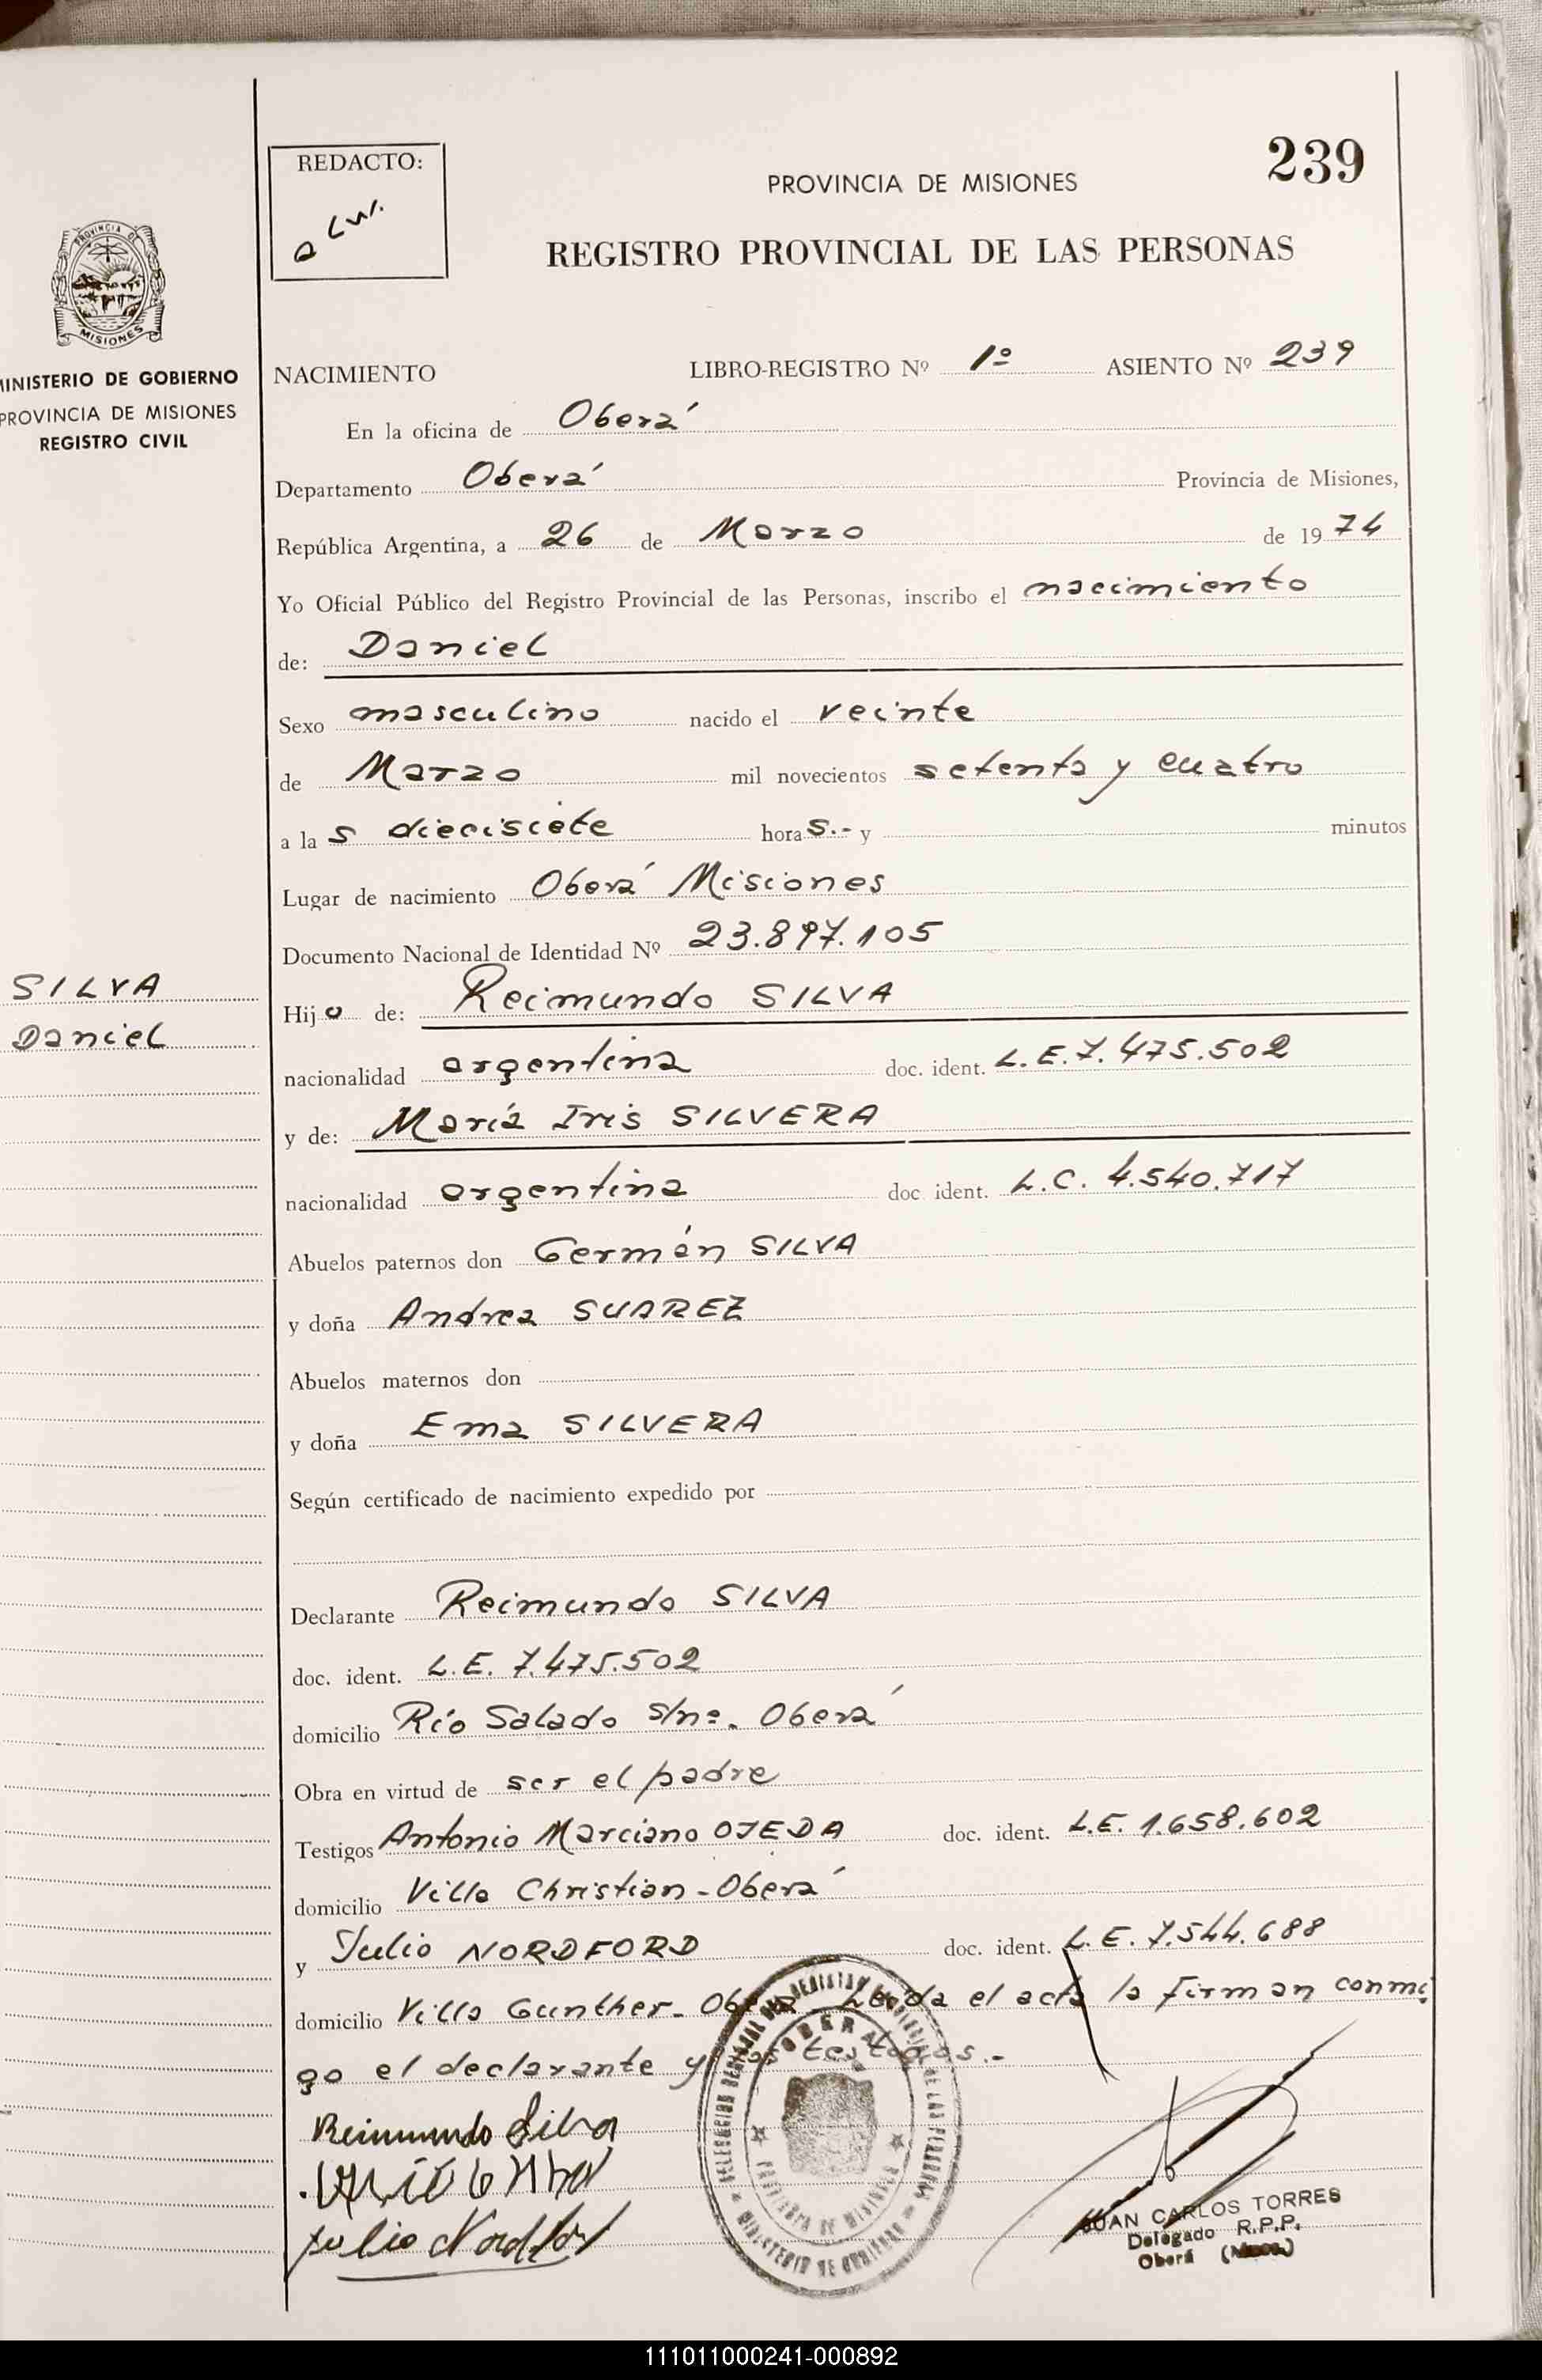 REDACTO:
239
PROVINCIA DE MISIONES
REGISTRO PROVINCIAL DE LAS PERSONAS
PROVINCIA DE
MISIONES
MINISTERIO DE GOBIERNO
PROVINCIA DE MISIONES
REGISTRO CIVIL
NACIMIENTO LIBRO-REGISTRO Nº 1º ASIENTO Nº 239
En la oficina de Oberá
Departamento Oberá Provincia de Misiones,
República Argentina, a 26 de Marzo de 1974
Yo Oficial Público del Registro Provincial de las Personas, inscribo el nacimiento
de: Daniel
Sexo masculino nacido el veinte
de Marzo mil novecientos setenta y cuatro
a las diecisiete horas.- y minutos
Lugar de nacimiento Oberá Misiones
Documento Nacional de Identidad Nº 23.897.105
SILVA
Daniel
Hijo de: Reimundo SILVA
nacionalidad argentina doc. ident. L.E. 7.475.502
y de: María Iris SILVERA
nacionalidad argentina doc ident. L.C. 4.540.717
Abuelos paternos don Germán SILVA
y doña Andrea SUAREZ
Abuelos maternos don
y doña Ema SILVERA
Según certificado de nacimiento expedido por
Declarante Reimundo SILVA
doc. ident. L.E. 7.475.502
domicilio Río Salado s/nº. Oberá
Obra en virtud de ser el padre
Testigos Antonio Marciano OJEDA doc. ident. L.E. 1.658.602
domicilio Villa Christian - Oberá
y Julio NORDFORD doc. ident. L.E. 7.544.688
domicilio Villa Gunther - Oberá. Leída el acta la firman conmi
go el declarante y los testigos.-
Reimundo Silva
Julio Nordfor
OBERA
PROVINCIA DE MISIONES
MINISTERIO DE GOBIERNO
JUAN CARLOS TORRES
Delegado R.P.P.
Oberá (Mnes.)
111011000241-000892